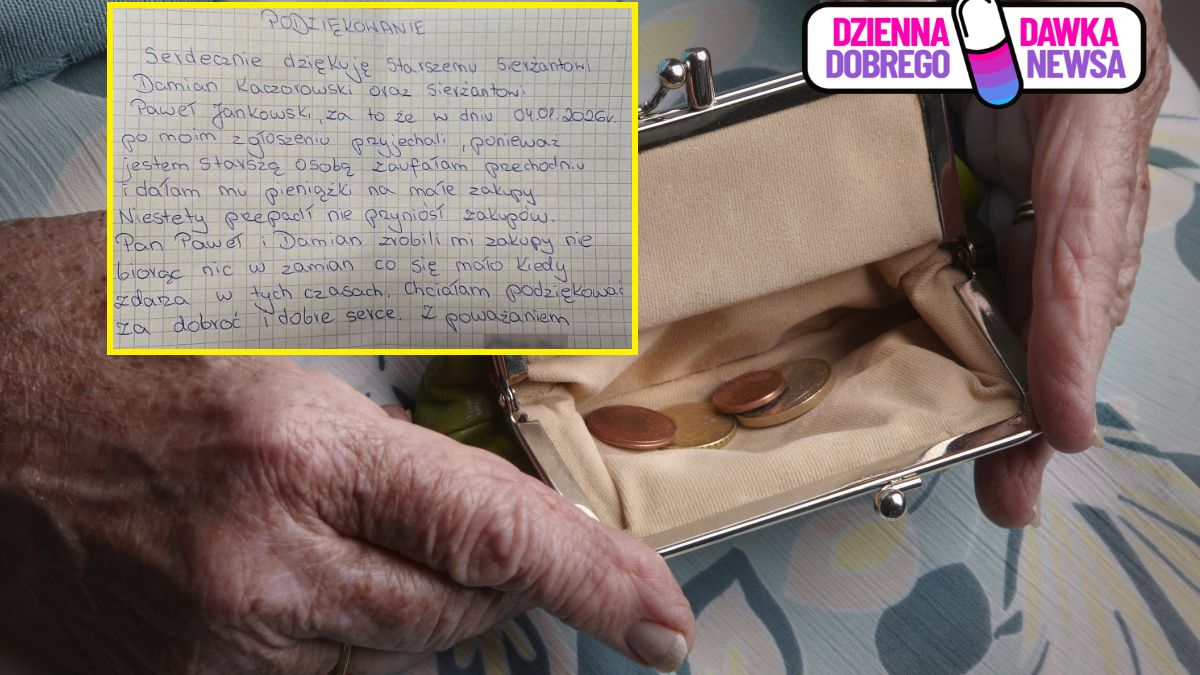 PODZIĘKOWANIE
Serdecznie dziękuję Starszemu Sierżantowi
Damian Kaczorowski oraz Sierżantowi
Paweł Jankowski, za to że w dniu 04.01.2026r.
po moim zgłoszeniu przyjechali, ponieważ
jestem starszą osobą zaufałam przechodniu
i dałam mu pieniążki na małe zakupy
Niestety przepadł nie przyniósł zakupów.
Pan Paweł i Damian zrobili mi zakupy nie
biorąc nic w zamian co się mało kiedy
zdaża w tych czasach. Chciałam podziękować
za dobroć i dobre serce. Z poważaniem
DZIENNA DAWKA
DOBREGO NEWSA